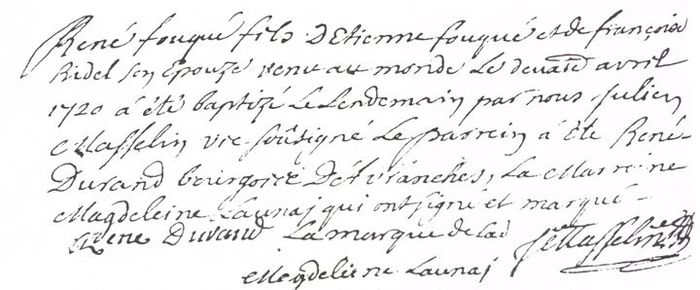 René fouqué fils D'Etienne fouqué et de françoise
Ridel son Epouze venu au monde Le deux d'avril
1720 á été baptizé Le Lendemain par nous Julien
Masselin vic. soûsigné Le parrein á été René
Durand bourgoice D'Avranches, La Marreine
Magdeleine Launaj qui ont signé et marqué
Rene Durand La marque de lad
Magdeleine Launaj J. Masselin